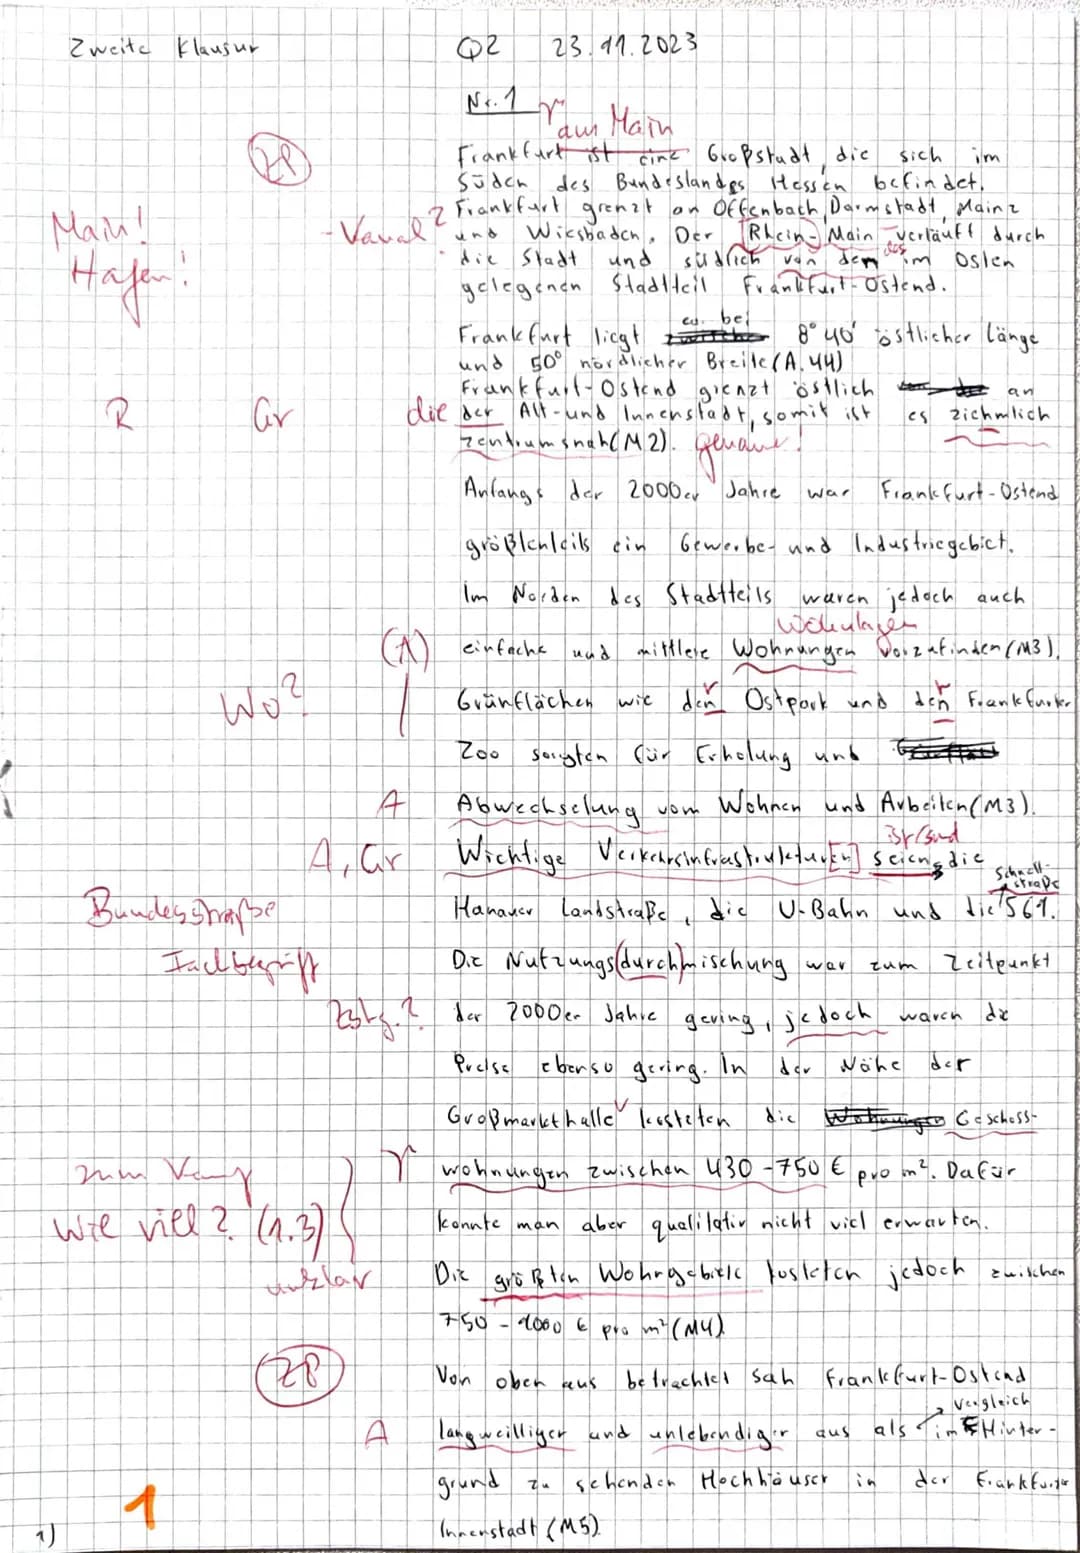 Zweite Klausur Q2 23.11.2023
Nr. 1
am Main
ZP Frankfurt ist eine Großstadt, die sich im
Süden des Bundeslandes Hessen befindet.
Main! Frankfurt grenzt an Offenbach, Darmstadt, Mainz
- Kanal? und Wiesbaden. Der [Rhein-] Main verläuft durch
Hafen! die Stadt und südlich von dem das im Osten
gelegenen Stadtteil Frankfurt-Ostend.
ca. bei
Frankfurt liegt 8° 40' östlicher Länge
und 50° nördlicher Breite (A. 44)
Frankfurt-Ostend grenzt östlich an
R Gr die der Alt- und Innenstadt, somit ist es ziehmlich
zentrumsnah (M2). genauer!
Anfangs der 2000er Jahre war Frankfurt-Ostend
größtenteils ein Gewerbe- und Industriegebiet.
Im Norden des Stadtteils waren jedoch auch
Wohnlagen
(A) einfache und mittlere Wohnungen vorzufinden (M3).
Wo? Grünflächen wie den r Ostpark und den r Frankfurter
Zoo sorgten für Erholung und
A Abwechselung vom Wohnen und Arbeiten (M3).
ist/sind
A, Gr Wichtige Verkehrsinfrastruktur[en] seien die
Schnell-
straße
Bundesstraße Hanauer Landstraße, die U-Bahn und die 561.
Fachbegriff Die Nutzungs(durch)mischung war zum Zeitpunkt
Zshg.? der 2000er Jahre gering, jedoch waren die
Preise ebenso gering. In der Nähe der
Großmarkthalle kosteten die Geschoss-
zum wohnungen zwischen 430 - 750 € pro m². Dafür
Wie viel? (1.3) konnte man aber qualitativ nicht viel erwarten.
unklar Die größten Wohngebiete kosteten jedoch zwischen
750 - 1000 € pro m² (M4).
ZP Von oben aus betrachtet sah Frankfurt-Ostend
Vergleich
A langweilliger und unlebendiger aus als im Hinter-
grund zu sehenden Hochhäuser in der Frankfurter
1
1) Innenstadt (M5).